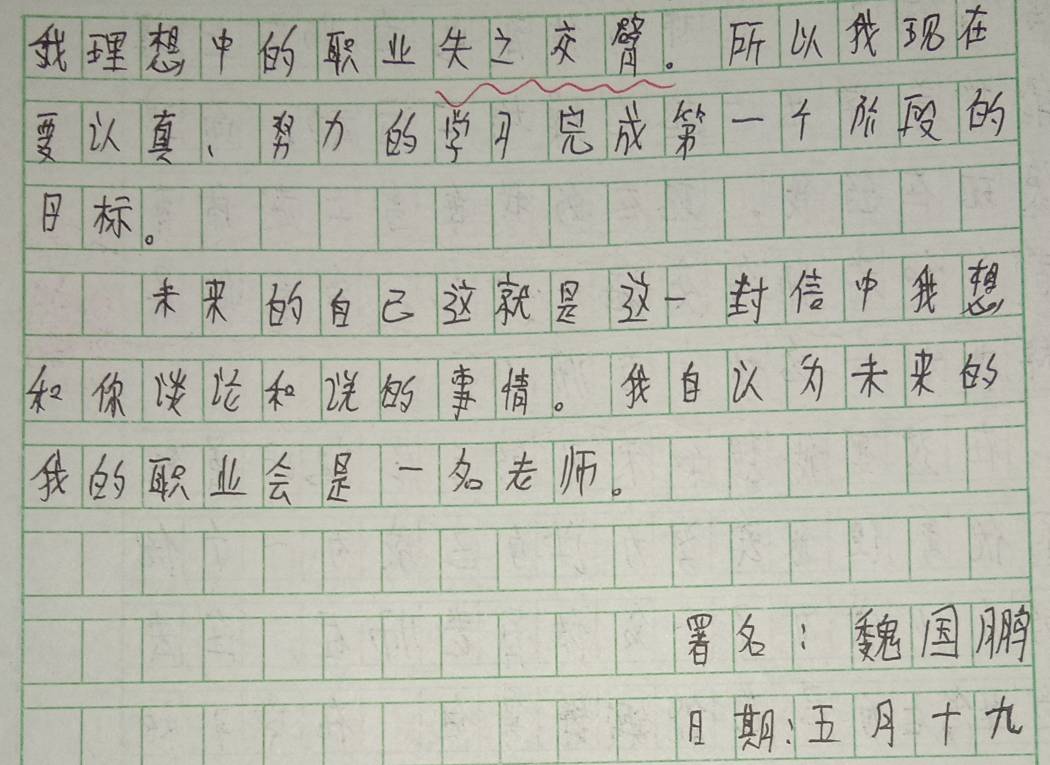 我理想中的职业失之交臂。所以我现在
要以真、努力的学习完成第一个阶段的
目标。
未来的自己这就是这一封信中我想
和你谈论和说的事情。我自以为未来的
我的职业会是一名老师。
署名：魏国鹏
日期：五月十九